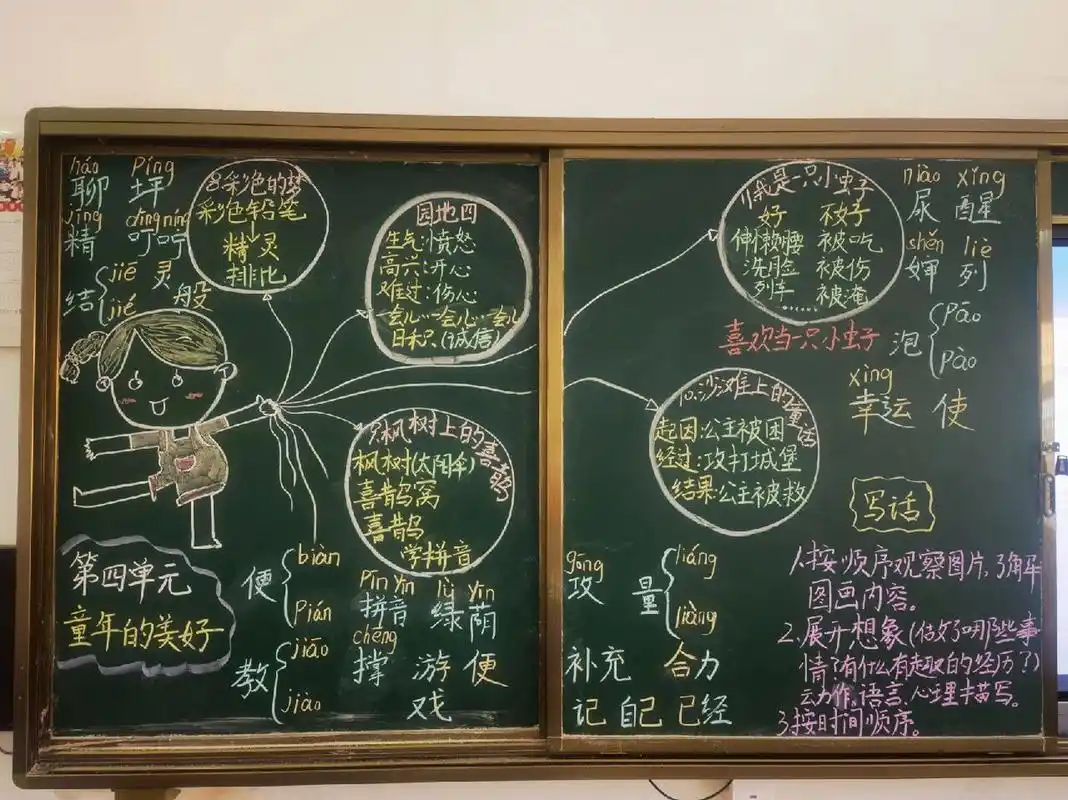 háo Píng
聊 坪
jīng dīng níng
精 叮咛
结 jiē jié
灵
般
8.彩色的梦
彩色铅笔
精灵
排比
园地四
生气:愤怒
高兴:开心
难过:伤心
一会儿…一会儿…一会儿
日积(诚信)
9.枫树上的喜鹊
枫树(太阳伞)
喜鹊窝
喜鹊
学拼音
第四单元
童年的美好
便 biàn Pián
教 jiāo jiào
Pīn yīn lǜ yīn
拼音 绿荫
chēng
撑 游 便
戏
11.我是一只小虫子
好 不好
伸懒腰 被吃
洗脸 被伤
列车 被淹
……
喜欢当一只小虫子
niào xǐng
尿 醒
shěn liè
婶 列
泡 pāo pào
xìng
幸运 使
10.沙滩上的童话
起因:公主被困
经过:攻打城堡
结果:公主被救
写话
gōng
攻
量 liáng liàng
补充 合力
记 自己 已经
1.按顺序观察图片,了解
图画内容。
2.展开想象(做了哪些事
情?有什么有趣的经历?)
动作、语言、心理描写。
3.按时间顺序。